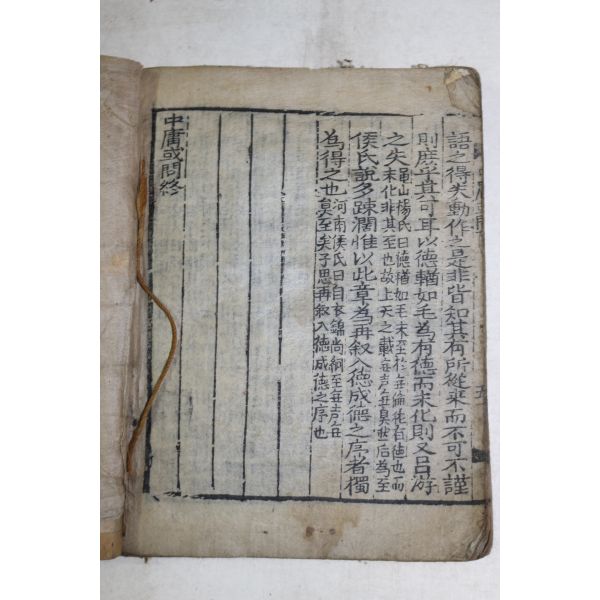 語之得失動作之是非皆知其有所從來而不可不謹
則庶乎其可耳以德輶如毛為有德而未化則又呂游
之失龜山楊氏曰德輶如毛未至於無倫猶有德也而
未化非其至也故上天之載無声無臭然后為至
侯氏說多踈濶惟以此章為再叙入德成德之序者獨
為得之也河南侯氏曰自衣錦尚絅至無声無
臭至矣子思再叙入德成德之序也
中庸或問終